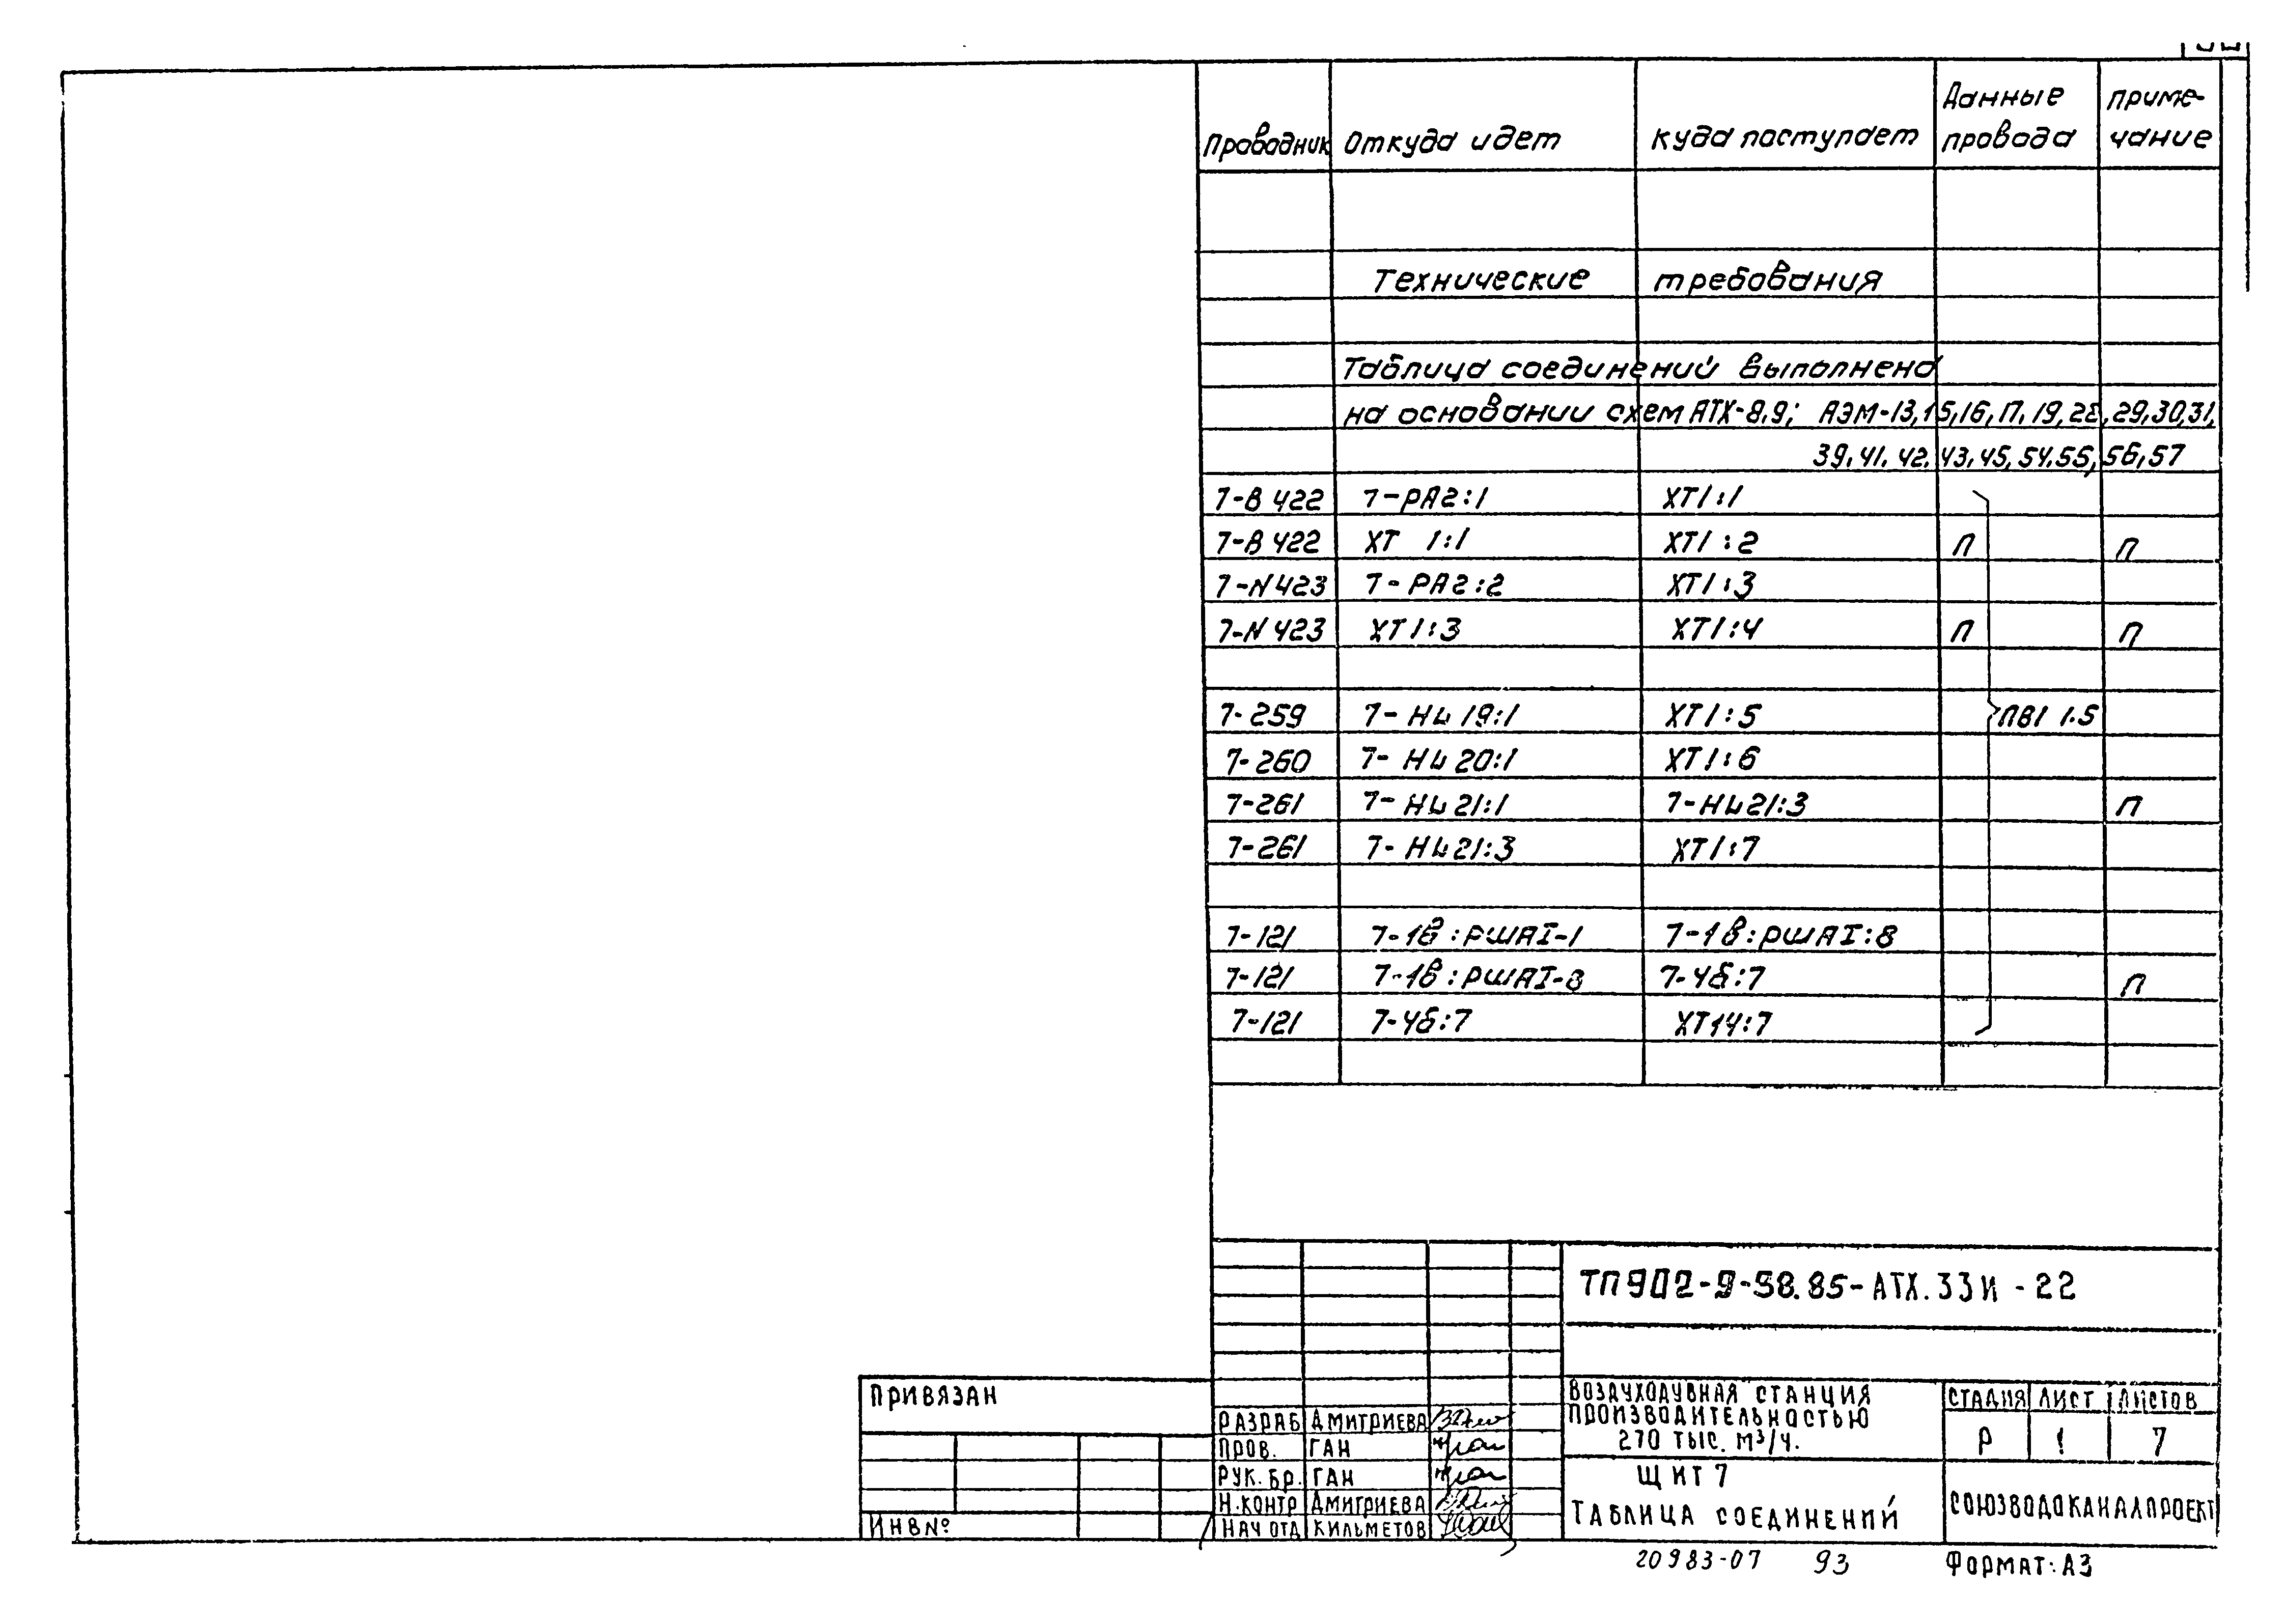 Проводник Откуда идет Куда поступает Данные провода Приме-чание
Технические требования
Таблица соединений выполнена
на основании схем АТХ-8,9; АЭМ-13,15,16,П,19,28,29,30,31,
39,41,42,43,45,54,55,56,57
7-В422 7-РА2:1 ХТ1:1
7-В422 ХТ 1:1 ХТ1:2 П П
7-N423 7-РА2:2 ХТ1:3
7-N423 ХТ1:3 ХТ1:4 П П
7-259 7-HL19:1 ХТ1:5 ПВ1 1.5
7-260 7-HL20:1 ХТ1:6
7-261 7-HL21:1 7-HL21:3 П
7-261 7-HL21:3 ХТ1:7
7-121 7-1в:РШАI-1 7-1в:РШАI:8
7-121 7-1в:РШАI-8 7-4б:7 П
7-121 7-4б:7 ХТ14:7
ТП902-9-38.85-АТХ.ЗЗИ-22
ПРИВЯЗАН
ИНВ№
РАЗРАБ ДМИТРИЕВА
ПРОВ. ГАН
РУК. БР. ГАН
Н.КОНТР ДМИТРИЕВА
НАЧ ОТД КИЛЬМЕТОВ
ВОЗДУХОДУВНАЯ СТАНЦИЯ
ПРОИЗВОДИТЕЛЬНОСТЬЮ
270 ТЫС. М³/Ч.
ЩИТ 7
ТАБЛИЦА СОЕДИНЕНИЙ
СТАДИЯ ЛИСТ ЛИСТОВ
Р 1 7
СОЮЗВОДОКАНАЛПРОЕКТ
20983-07 93 ФОРМАТ: А3